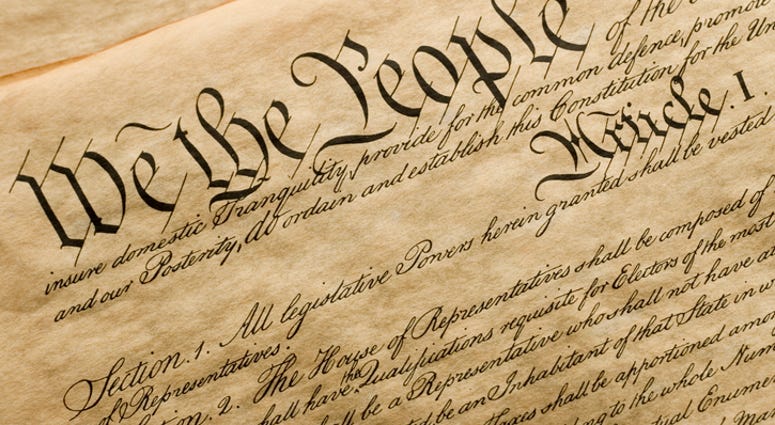 We the People of the
insure domestic Tranquility, provide for the common defence, promote
and our Posterity, do ordain and establish this Constitution for the Un
Article. I.
Section. 1. All legislative Powers herein granted shall be vested
of Representatives.
Section. 2. The House of Representatives shall be composed of
shall have the Qualifications requisite for Electors of the most
shall be a Representative who shall not have a
ed, be an Inhabitant of that State in w
Taxes shall be apportioned amo
ing to the whole Num
ctual Enumer